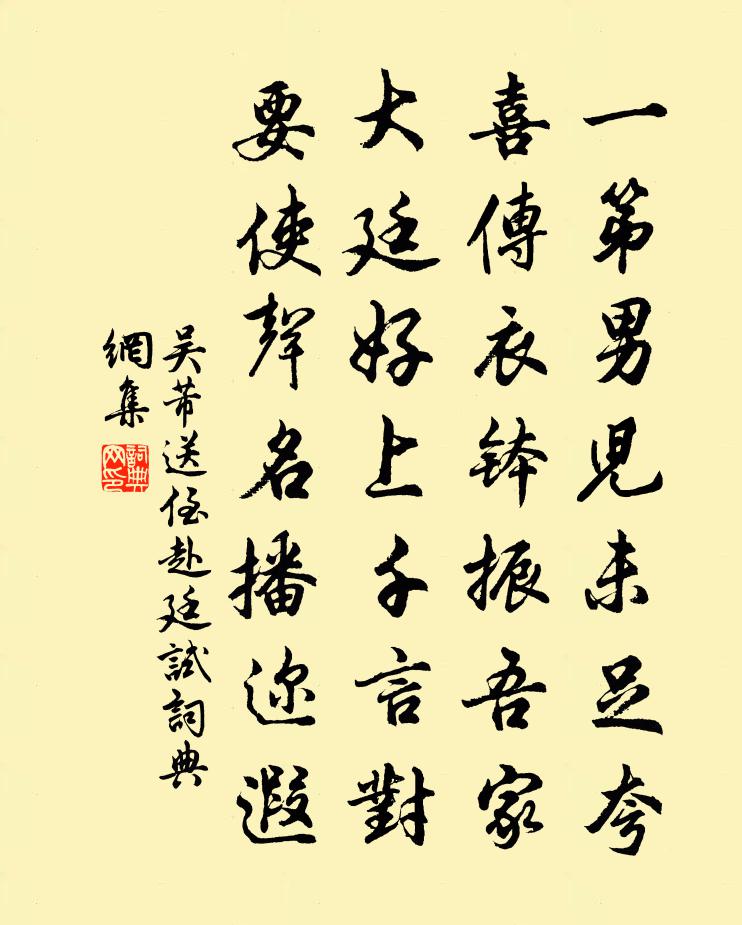 一第男兒未足夸
喜傳衣鉢振吾家
大廷好上千言對
要使聲名播迩遐
吴芾送侄赴廷試詞典
網集
詞典網印